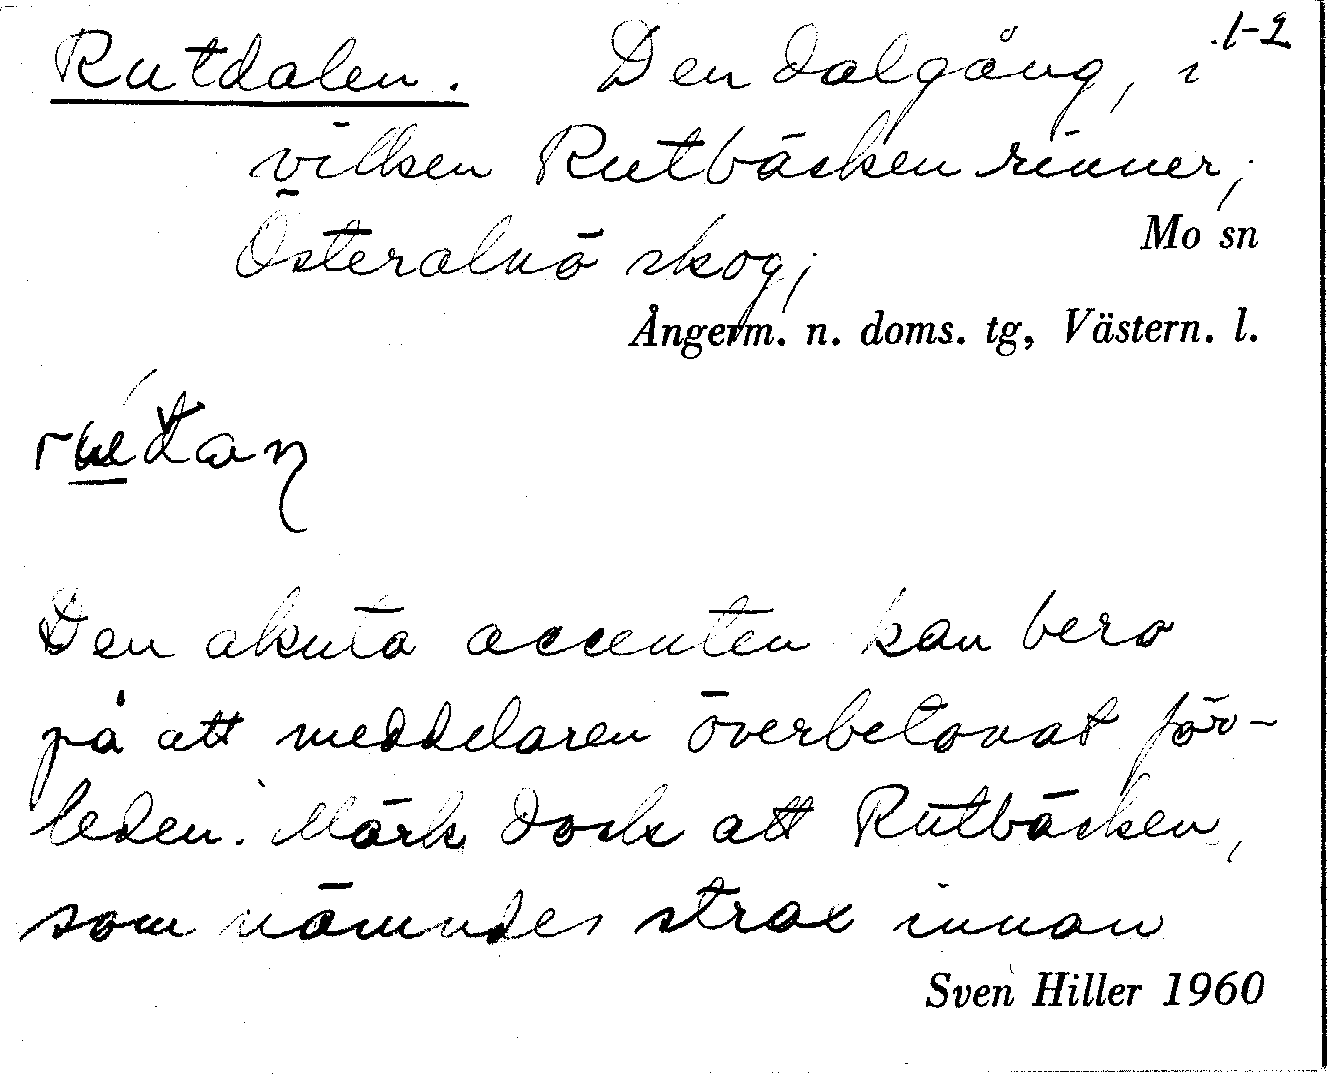 1-2
Rutdalen. Den dalgång, i
vilken Rutbäcken rinner;
Österalnö skog;
Mo sn
Ångerm. n. doms. tg, Västern. l.
Den akuta accenten kan bero
på att meddelaren överbetonat för-
leden. Märk dock att Rutbäcken,
som nämndes strax innan
Sven Hiller 1960